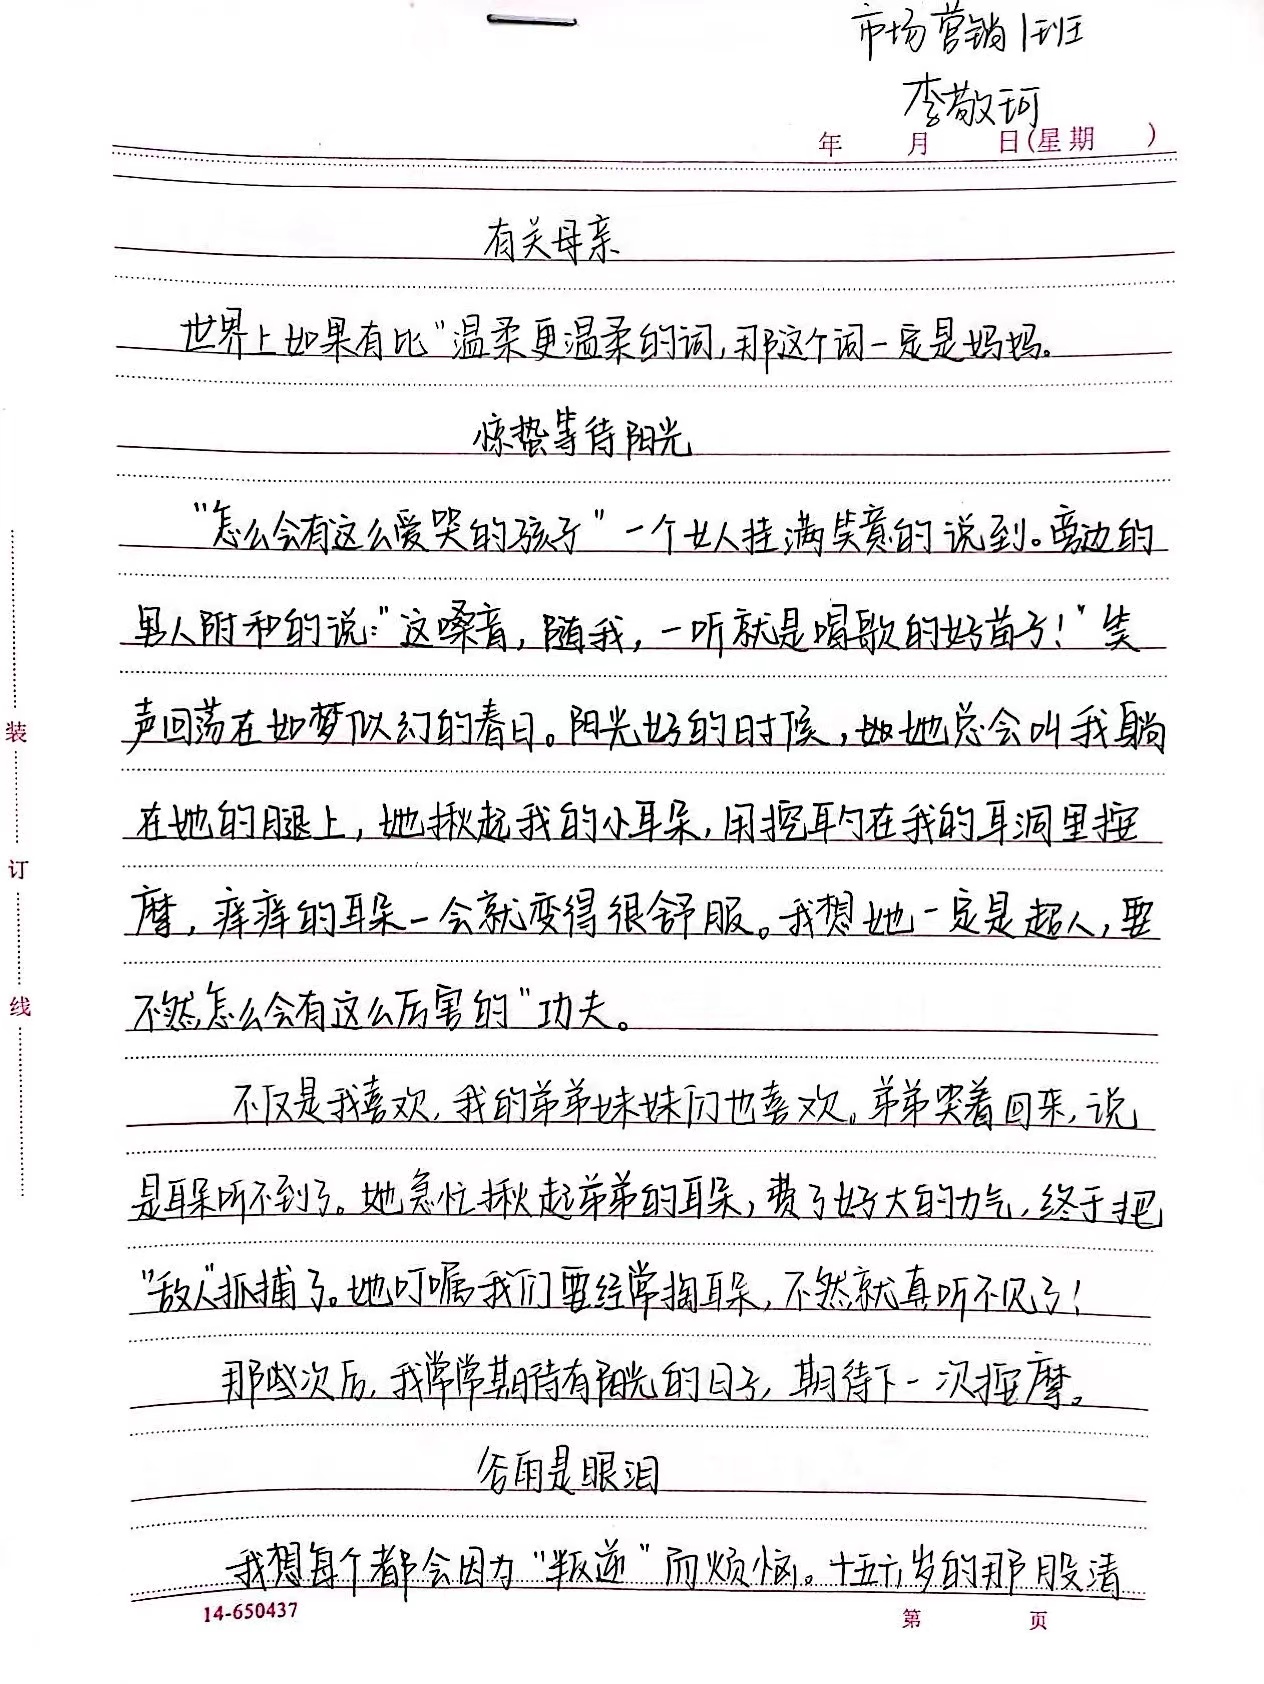 市场营销1班
李敬珂
年 月 日(星期 )
有关母亲
世界上如果有比"温柔更温柔的词,那这个词一定是妈妈。
惊蛰等待阳光
"怎么会有这么爱哭的孩子"一个女人挂满笑意的说到。旁边的
男人附和的说:"这嗓音,随我,一听就是唱歌的好苗子!"笑
声回荡在如梦似幻的春日。阳光好的时候,她总会叫我躺
在她的腿上,她揪起我的小耳朵,用挖耳勺在我的耳洞里按
摩,痒痒的耳朵一会就变得很舒服。我想她一定是超人,要
不然怎么会有这么厉害的"功夫。
不仅是我喜欢,我的弟弟妹妹们也喜欢。弟弟哭着回来,说
是耳朵听不到了。她急忙揪起弟弟的耳朵,费了好大的力气,终于把
"敌人"抓捕了。她叮嘱我们要经常掏耳朵,不然就真听不见了!
那些次后,我常常期待有阳光的日子,期待下一次按摩。
谷雨是眼泪
我想每个都会因为"叛逆"而烦恼。十五六岁的那段清
14-650437
第 页
装
订
线